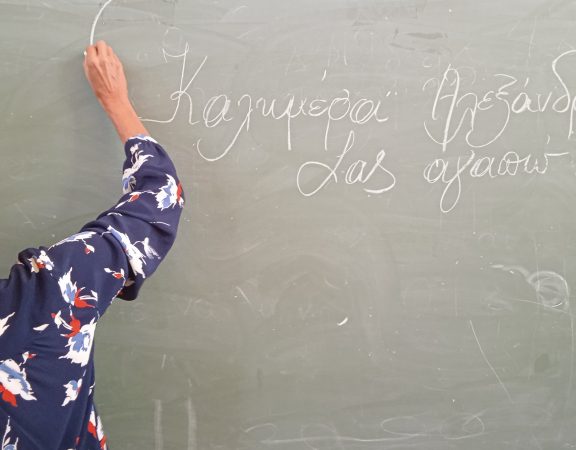 Καλημέρα Αλεξάνδρ
Σας αγαπώ